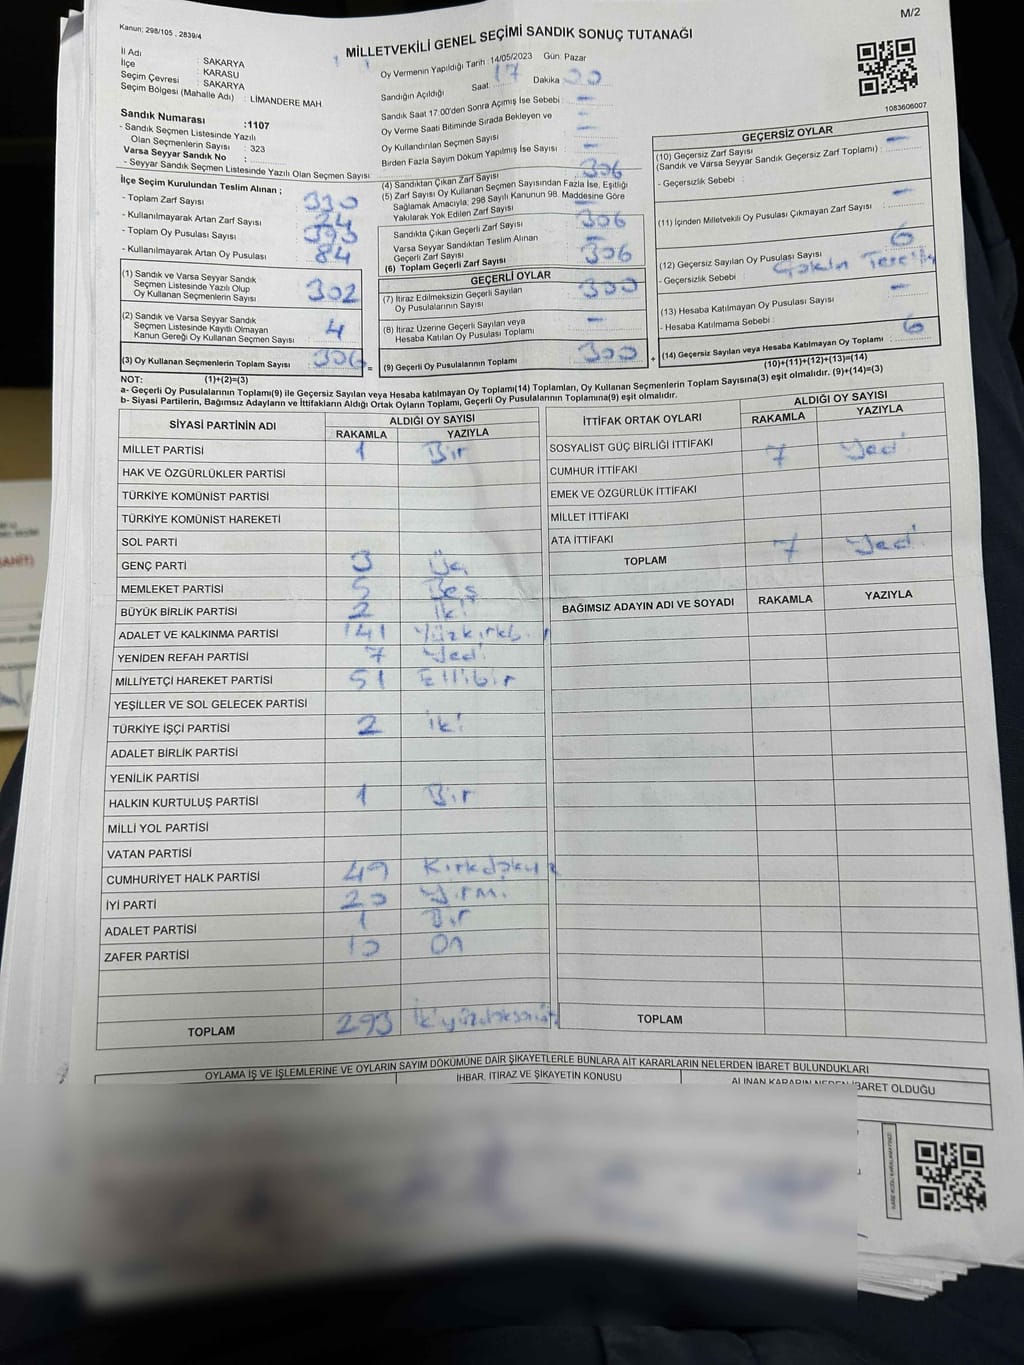 M/2
Kanun; 298/105 , 2839/4
MİLLETVEKİLİ GENEL SEÇİMİ SANDIK SONUÇ TUTANAĞI
İl Adı : SAKARYA
İlçe : KARASU
Seçim Çevresi : SAKARYA
Seçim Bölgesi (Mahalle Adı) : LİMANDERE MAH
Oy Vermenin Yapıldığı Tarih : 14/05/2023 Gün: Pazar
Sandığın Açıldığı Saat 17 Dakika 00
Sandık Saat 17:00'den Sonra Açımış İse Sebebi : -
Oy Verme Saati Bitiminde Sırada Bekleyen ve
Oy Kullandırılan Seçmen Sayısı : -
Birden Fazla Sayım Döküm Yapılmış İse Sayısı : -
1083606007
Sandık Numarası :1107
- Sandık Seçmen Listesinde Yazılı
Olan Seçmenlerin Sayısı : 323
Varsa Seyyar Sandık No :
- Seyyar Sandık Seçmen Listesinde Yazılı Olan Seçmen Sayısı :
İlçe Seçim Kurulundan Teslim Alınan ;
- Toplam Zarf Sayısı : 330
- Kullanılmayarak Artan Zarf Sayısı : 24
- Toplam Oy Pusulası Sayısı : 393
- Kullanılmayarak Artan Oy Pusulası : 84
(1) Sandık ve Varsa Seyyar Sandık
Seçmen Listesinde Yazılı Olup
Oy Kullanan Seçmenlerin Sayısı : 302
(2) Sandık ve Varsa Seyyar Sandık
Seçmen Listesinde Kayıtlı Olmayan
Kanun Gereği Oy Kullanan Seçmen Sayısı : 4
(3) Oy Kullanan Seçmenlerin Toplam Sayısı : 306 =
(1)+(2)=(3)
(4) Sandıktan Çıkan Zarf Sayısı : 306
(5) Zarf Sayısı Oy Kullanan Seçmen Sayısından Fazla İse, Eşitliği
Sağlamak Amacıyla, 298 Sayılı Kanunun 98. Maddesine Göre
Yakılarak Yok Edilen Zarf Sayısı : -
Sandıkta Çıkan Geçerli Zarf Sayısı : 306
Varsa Seyyar Sandıktan Teslim Alınan
Geçerli Zarf Sayısı : -
(6) Toplam Geçerli Zarf Sayısı : 306
GEÇERLİ OYLAR
(7) İtiraz Edilmeksizin Geçerli Sayılan
Oy Pusulalarının Sayısı : 300
(8) İtiraz Üzerine Geçerli Sayılan veya
Hesaba Katılan Oy Pusulası Toplamı : -
(9) Geçerli Oy Pusulalarının Toplamı : 300 +
GEÇERSİZ OYLAR
(10) Geçersiz Zarf Sayısı
(Sandık ve Varsa Seyyar Sandık Geçersiz Zarf Toplamı) : -
- Geçersizlik Sebebi :
(11) İçinden Milletvekili Oy Pusulası Çıkmayan Zarf Sayısı : -
(12) Geçersiz Sayılan Oy Pusulası Sayısı : 6
- Geçersizlik Sebebi :
(13) Hesaba Katılmayan Oy Pusulası Sayısı : -
- Hesaba Katılmama Sebebi :
(14) Geçersiz Sayılan veya Hesaba Katılmayan Oy Toplamı : 6
(10)+(11)+(12)+(13)=(14)
NOT:
a- Geçerli Oy Pusulalarının Toplamı(9) ile Geçersiz Sayılan veya Hesaba katılmayan Oy Toplamı(14) Toplamları, Oy Kullanan Seçmenlerin Toplam Sayısına(3) eşit olmalıdır. (9)+(14)=(3)
b- Siyasi Partilerin, Bağımsız Adayların ve İttifakların Aldığı Ortak Oyların Toplamı, Geçerli Oy Pusulalarının Toplamına(9) eşit olmalıdır.
SİYASİ PARTİNİN ADI ALDIĞI OY SAYISI
RAKAMLA YAZIYLA
MİLLET PARTİSİ 1 Bir
HAK VE ÖZGÜRLÜKLER PARTİSİ
TÜRKİYE KOMÜNİST PARTİSİ
TÜRKİYE KOMÜNİST HAREKETİ
SOL PARTİ
GENÇ PARTİ 3 Üç
MEMLEKET PARTİSİ 5 Beş
BÜYÜK BİRLİK PARTİSİ 2 İki
ADALET VE KALKINMA PARTİSİ 141 Yüzkırkb
YENİDEN REFAH PARTİSİ 7 Yedi
MİLLİYETÇİ HAREKET PARTİSİ 51 Ellibir
YEŞİLLER VE SOL GELECEK PARTİSİ
TÜRKİYE İŞÇİ PARTİSİ 2 iki
ADALET BİRLİK PARTİSİ
YENİLİK PARTİSİ
HALKIN KURTULUŞ PARTİSİ 1 Bir
MİLLİ YOL PARTİSİ
VATAN PARTİSİ
CUMHURİYET HALK PARTİSİ 49 Kırkdokuz
İYİ PARTİ 20 Yirmi
ADALET PARTİSİ 1 Bir
ZAFER PARTİSİ 10 On
TOPLAM 293
İTTİFAK ORTAK OYLARI ALDIĞI OY SAYISI
RAKAMLA YAZIYLA
SOSYALİST GÜÇ BİRLİĞİ İTTİFAKI
CUMHUR İTTİFAKI 7 Yedi
EMEK VE ÖZGÜRLÜK İTTİFAKI
MİLLET İTTİFAKI
ATA İTTİFAKI
TOPLAM 7 Yedi
BAĞIMSIZ ADAYIN ADI VE SOYADI RAKAMLA YAZIYLA
TOPLAM
OYLAMA İŞ VE İŞLEMLERİNE VE OYLARIN SAYIM DÖKÜMÜNE DAİR ŞİKAYETLERLE BUNLARA AİT KARARLARIN NELERDEN İBARET BULUNDUKLARI
İHBAR, İTİRAZ VE ŞİKAYETİN KONUSU
ALINAN KARARIN NEDEN İBARET OLDUĞU